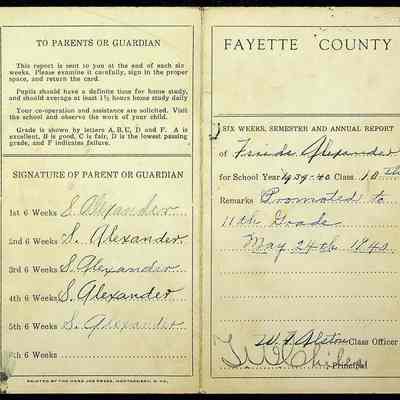 TO PARENTS OR GUARDIAN
This report is sent to you at the end of each six
weeks. Please examine it carefully, sign in the proper
space, and return the card.
Pupils should have a definite time for home study,
and should average at least 1½ hours home study daily
Your co-operation and assistance are solicited. Visit
the school and observe the work of your child.
Grade is shown by letters A, B, C, D and F. A is
excellent, B is good, C is fair, D is the lowest passing
grade, and F indicates failure.
SIGNATURE OF PARENT OR GUARDIAN
1st 6 Weeks S. Alexander
2nd 6 Weeks S. Alexander
3rd 6 Weeks S. Alexander
4th 6 Weeks S. Alexander
5th 6 Weeks S. Alexander
6 Weeks
PRINTED BY THE PRESS, MONTGOMERY, W. VA.
FAYETTE COUNTY
SIX WEEKS, SEMESTER AND ANNUAL REPORT
of Alexander
for School Year 1939-40 Class 10th
Remarks Promoted to
11th Grade
May 24th 1940
Alston Class Officer
Principal